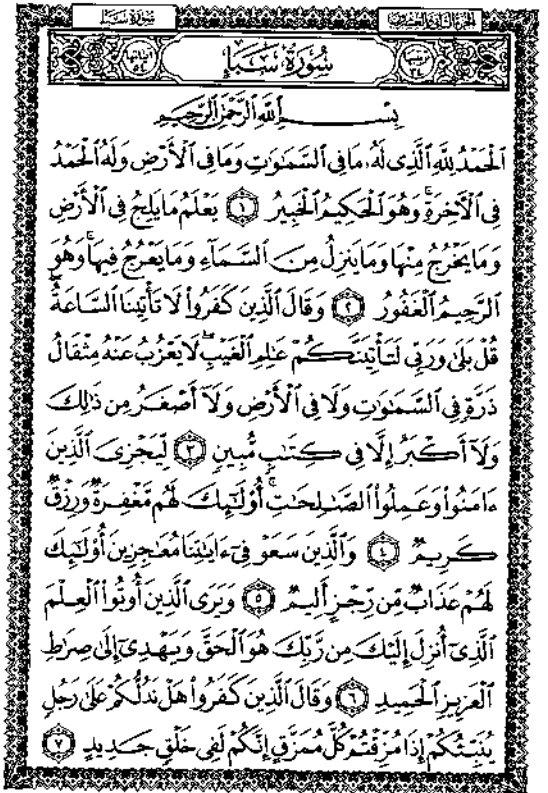 سُورَةُ سَبَإٍ الجُزْءُ الثَّانِي وَالعِشْرُونَ
آيَاتُهَا ٥٤ سُورَةُ سَبَإٍ تَرْتِيبُهَا ٣٤
بِسْمِ ٱللَّهِ ٱلرَّحْمَٰنِ ٱلرَّحِيمِ
ٱلْحَمْدُ لِلَّهِ ٱلَّذِى لَهُۥ مَا فِى ٱلسَّمَٰوَٰتِ وَمَا فِى ٱلْأَرْضِ وَلَهُ ٱلْحَمْدُ
فِى ٱلْءَاخِرَةِ ۚ وَهُوَ ٱلْحَكِيمُ ٱلْخَبِيرُ ۝١ يَعْلَمُ مَا يَلِجُ فِى ٱلْأَرْضِ
وَمَا يَخْرُجُ مِنْهَا وَمَا يَنزِلُ مِنَ ٱلسَّمَآءِ وَمَا يَعْرُجُ فِيهَا ۚ وَهُوَ
ٱلرَّحِيمُ ٱلْغَفُورُ ۝٢ وَقَالَ ٱلَّذِينَ كَفَرُوا۟ لَا تَأْتِينَا ٱلسَّاعَةُ ۖ
قُلْ بَلَىٰ وَرَبِّى لَتَأْتِيَنَّكُمْ عَٰلِمِ ٱلْغَيْبِ ۖ لَا يَعْزُبُ عَنْهُ مِثْقَالُ
ذَرَّةٍ فِى ٱلسَّمَٰوَٰتِ وَلَا فِى ٱلْأَرْضِ وَلَآ أَصْغَرُ مِن ذَٰلِكَ
وَلَآ أَكْبَرُ إِلَّا فِى كِتَٰبٍ مُّبِينٍ ۝٣ لِّيَجْزِىَ ٱلَّذِينَ
ءَامَنُوا۟ وَعَمِلُوا۟ ٱلصَّٰلِحَٰتِ ۚ أُو۟لَٰٓئِكَ لَهُم مَّغْفِرَةٌ وَرِزْقٌ
كَرِيمٌ ۝٤ وَٱلَّذِينَ سَعَوْ فِىٓ ءَايَٰتِنَا مُعَٰجِزِينَ أُو۟لَٰٓئِكَ
لَهُمْ عَذَابٌ مِّن رِّجْزٍ أَلِيمٌ ۝٥ وَيَرَى ٱلَّذِينَ أُوتُوا۟ ٱلْعِلْمَ
ٱلَّذِىٓ أُنزِلَ إِلَيْكَ مِن رَّبِّكَ هُوَ ٱلْحَقَّ وَيَهْدِىٓ إِلَىٰ صِرَٰطِ
ٱلْعَزِيزِ ٱلْحَمِيدِ ۝٦ وَقَالَ ٱلَّذِينَ كَفَرُوا۟ هَلْ نَدُلُّكُمْ عَلَىٰ رَجُلٍ
يُنَبِّئُكُمْ إِذَا مُزِّقْتُمْ كُلَّ مُمَزَّقٍ إِنَّكُمْ لَفِى خَلْقٍ جَدِيدٍ ۝٧